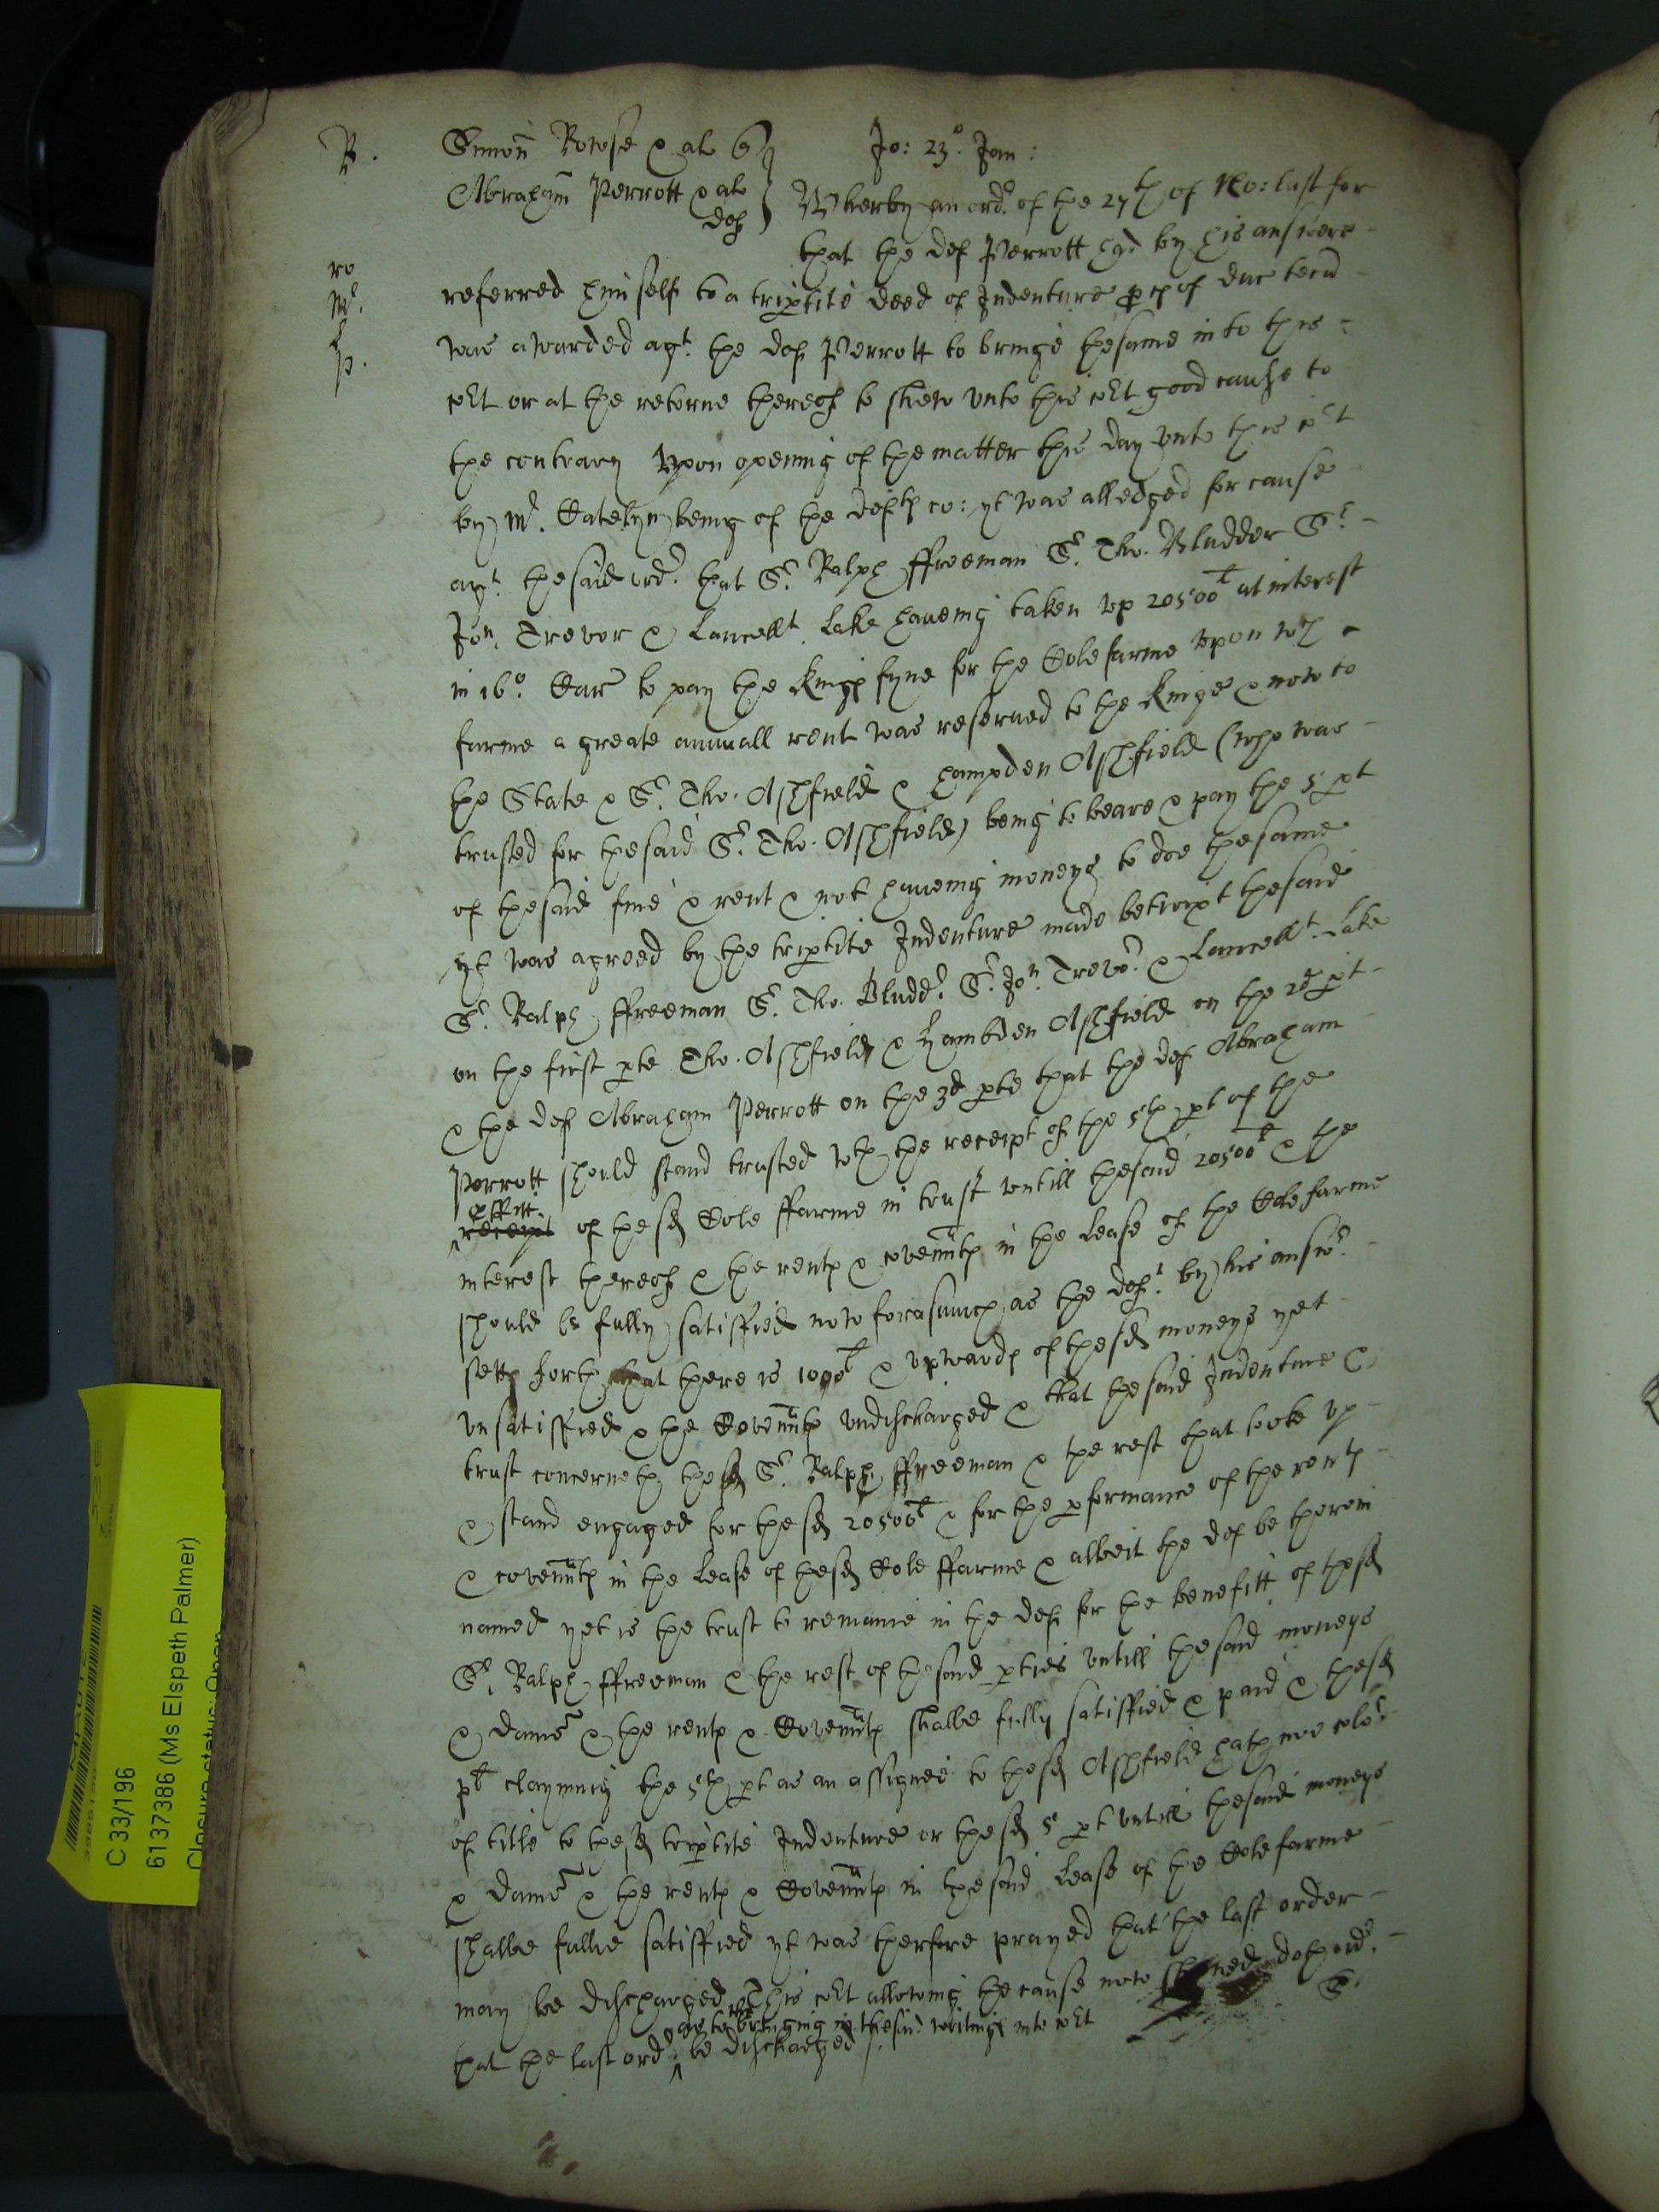 R.
Simon Rowse & al q
Jo: 23o. Jan:
Abraham Perrott & al
def
Wherby an ord.r of the 27th of No: last for
that the def Perrott had by his answere
ro
referred himself to a triptite deed of Indenture proces of duc tecu
Mr.
was awarded agt. the def Perrott to bringe thesame in to this
p.
cort or at the retorne thereof to shew vnto this cort good cause to
the contrary Vpon opening of the matter this day vnto this cort
by Mr. Hatelyn being of the defts co: yt was alledged for cause
agt. thesaid ord.r that Sr. Ralph ffreeman Sr. Tho. Bludder Sr.
Jon. Trevor & Lancellt. Lake haueing taken vp 20500l at interest
in 16o. Car to pay the Kings fyne for the Cole farme vpon wch
farme a greate annuall rent was reserued to the Kinge & now to
the State & Sr. Tho. Ashfield & Hampden Ashfield (who was
trusted for thesaid Sr. Tho. Ashfield) being to beare & pay the 5 pt
of thesaid fine & rent & not haueing moneys to doe thesame
yt was agreed by the triptite Indenture made betwixt thesaid
Sr. Ralph ffreeman Sr. Tho. Bludd.r Sr. Jon. Trevor & Lancellt. Lake
on the first pte Tho. Ashfield & Hambden Ashfield on the 2d pt
& the def Abraham Perrott on the 3d pte that the def Abraham
Perrott should stand trusted wth the receipt of the 5th pt of the
receipt of thesd Cole ffarme in trust vntill thesaid 20500l & the
interest thereof & the rents & covennts in the Lease of the Cole farme
should be fully satisfied now forasmuch as the deft. by his answr.
setts forth that there is 1000l & vpwards of thesd moneys yet
vnsatisfied & the Covennts vndischarged & that thesaid Indenture &
trust concerneth thesd Sr. Ralph ffreeman & the rest that tooke vp
& stand engaged for thesd 20500l & for the pformance of the rents
& covennts in the Lease of thesd Cole ffarme & albeit the def be therein
named yet is the trust to remaine in the def for the benefitt of thesd
Sr. Ralph ffreeman & the rest of thesaid pties vntill thesaid moneys
& dame & the rents & Covennts shalbe fully satisfied & paid & thesd
plt clayming the 5th pt as an assignee to thesd Ashfield hath noe color.
of title to thesd triptite Indenture or thesd 5 pt vntill thesaid moneys
& dame & the rents & Covennts in thesaid Lease of the Cole farme
shalbe fullie satisfied yt was therfore prayed that the last order
may be discharged This cort allowing the cause now shewed doth ord.r
as to the bringing in thesaid writings into cort
that the last ord.r be discharged
C 33/196
6137386 (Ms Elspeth Palmer)
Closure status: Open